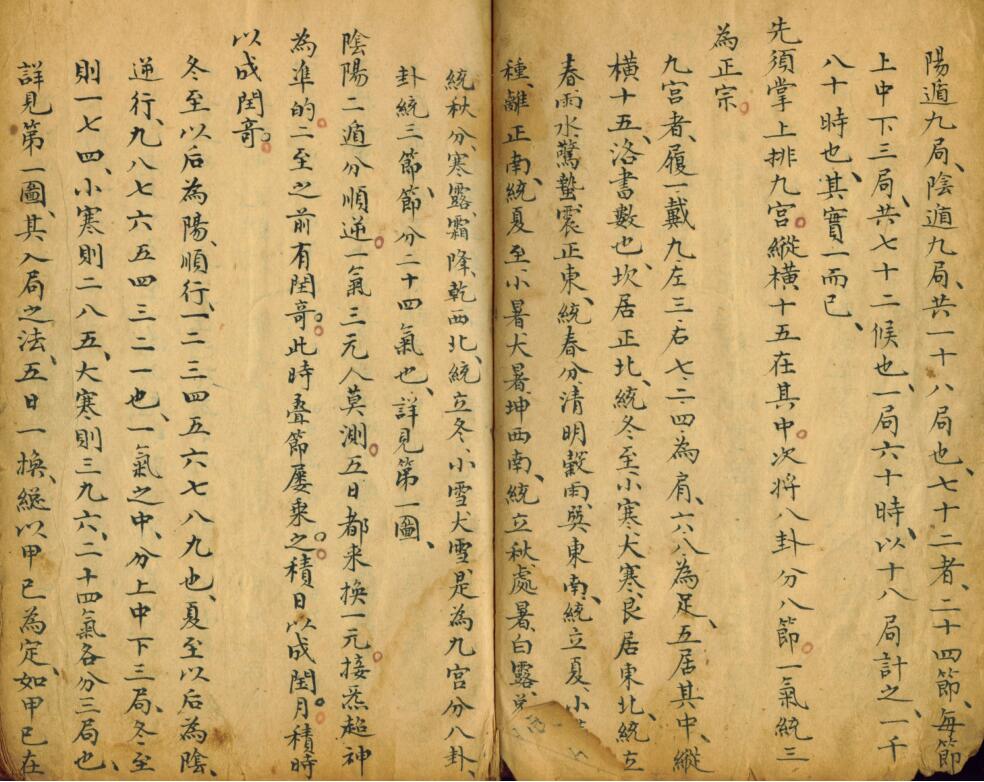 陽遁九局、陰遁九局、共一十八局也、七十二者、二十四節、每節
上中下三局、共七十二候也、一局六十時、以十八局計之、一千
八十時也、其實一而已、
先須掌上排九宮。縱橫十五在其中。次將八卦分八節。一氣統三
為正宗。
九宮者、履一戴九左三右七二四為肩、六八為足、五居其中、縱
橫十五、洛書數也、坎居正北、統冬至小寒大寒、艮居東北、統立
春雨水驚蟄震正東、統春分清明穀雨、巽東南、統立夏、小
種、離正南、統夏至、小暑大暑、坤西南、統立秋處暑、白露、兌
統秋分、寒露、霜降、乾西北、統立冬、小雪大雪、是為九宮分八卦、
卦統三節、節分二十四氣也、詳見第一圖、
陰陽二遁分順逆。一氣三元人莫測。五日都來換一元。接炁超神
為準的。二至之前有閏奇。此時疊節屢乘之。積日以成閏月。積時
以成閏奇。
冬至以后為陽、順行、一二三四五六七八九也、夏至以后為陰、
逆行、九八七六五四三二一也、一氣之中、分上中下三局、冬至
則一七四、小寒則二八五、大寒則三九六、二十四氣各分三局也、
詳見第一圖、其入局之法、五日一換、縂以甲己為定、如甲己在